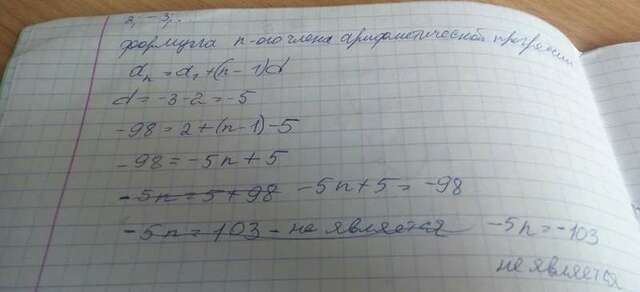 2; -3;
формула n-ого члена арифметической прогрессии
aₙ = a₁ + (n-1)d
d = -3-2 = -5
-98 = 2 + (n-1)-5
-98 = -5n + 5
-5n = 5 + 98 -5n + 5 = -98
-5n = 103 - не является -5n = -103
не является